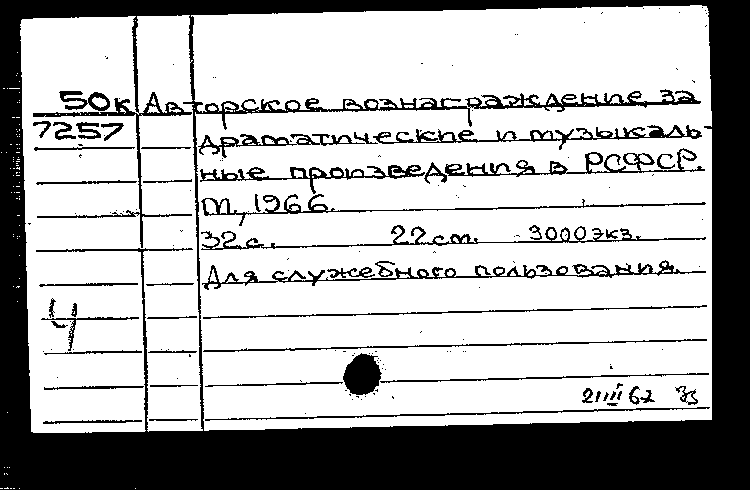 50к Авторское вознаграждение за
7257 драматические и музыкаль-
ные произведения в РСФСР.
М., 1966.
32 с. 22 см. 3000 экз.
Для служебного пользования.
Ч
21 III 67